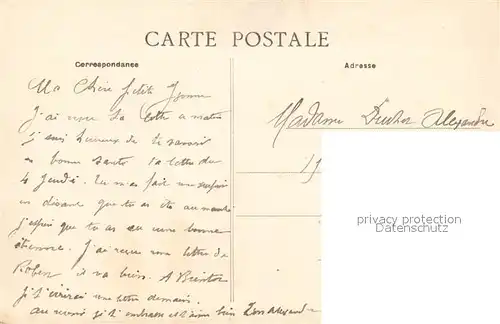 CARTE POSTALE
Correspondance
Adresse
Ma Chère petite Yvonne
J'ai reçu ta lettre ce matin
je suis heureux de te savoir
en bonne santé ta lettre du
4 Jeudi. Tu m'as fait
en disant que tu as été au marché
j'espère que tu as eu une bonne
étrenne. J'ai reçu une lettre de
Robert il va bien. A Bientôt
je t'écrirai une lettre demain.
au revoir je t'embrasse et t'aime bien Ton Alexandre
Madame Alexandre
privacy protection
www.oldthing.de